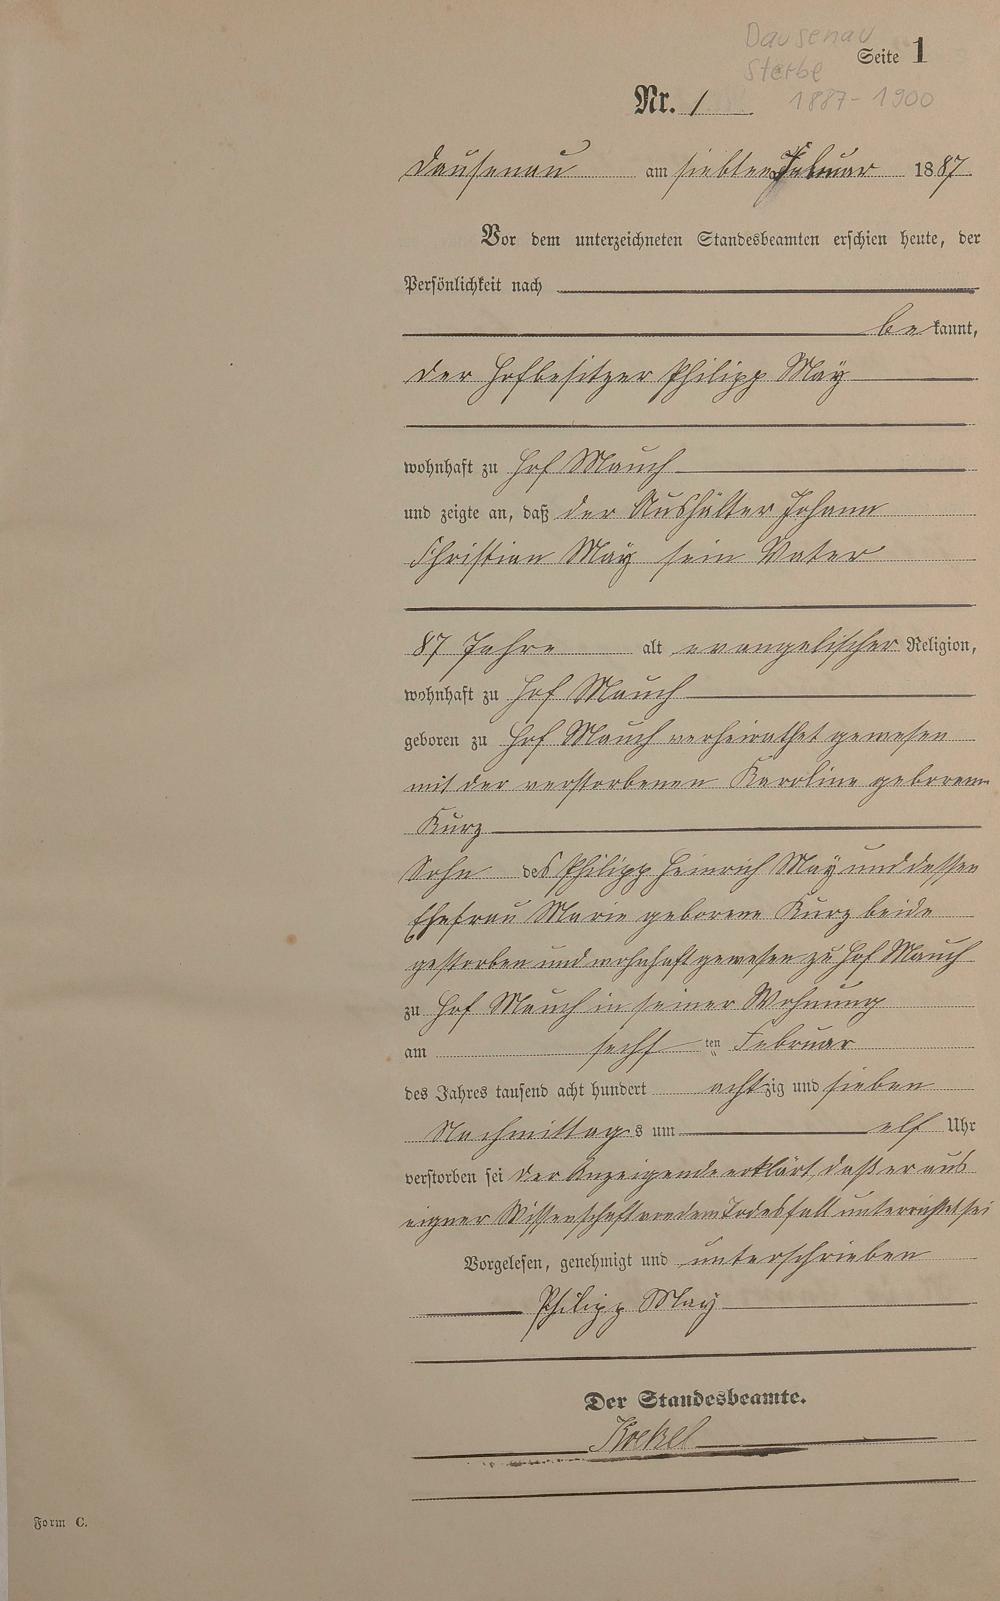 Dausenau
Seite 1
Sterbe
1887-1900
Nr. 1
Dausenau am siebten Februar 1887
Vor dem unterzeichneten Standesbeamten erschien heute, der
Persönlichkeit nach
bekannt,
der Hofbesitzer Philipp May
wohnhaft zu Hof Mauch
und zeigte an, daß der Aushälter Johann
Christian May sein Vater
87 Jahre alt evangelischer Religion,
wohnhaft zu Hof Mauch
geboren zu Hof Mauch verheirathet gewesen
mit der verstorbenen Karoline geborenen
Kurz
Sohn des Philipp Heinrich May und dessen
Ehefrau Marie geborene Kurz beide
gestorben und wohnhaft gewesen zu Hof Mauch
zu Hof Mauch in seiner Wohnung
am sechsten Februar
des Jahres tausend acht hundert achtzig und sieben
Nachmittags um elf Uhr
verstorben sei Der Anzeigende erklärt, daß er aus
eigner Wissenschaft von dem Todesfall unterrichtet sei
Vorgelesen, genehmigt und unterschrieben
Philipp May
Der Standesbeamte.
Form C.